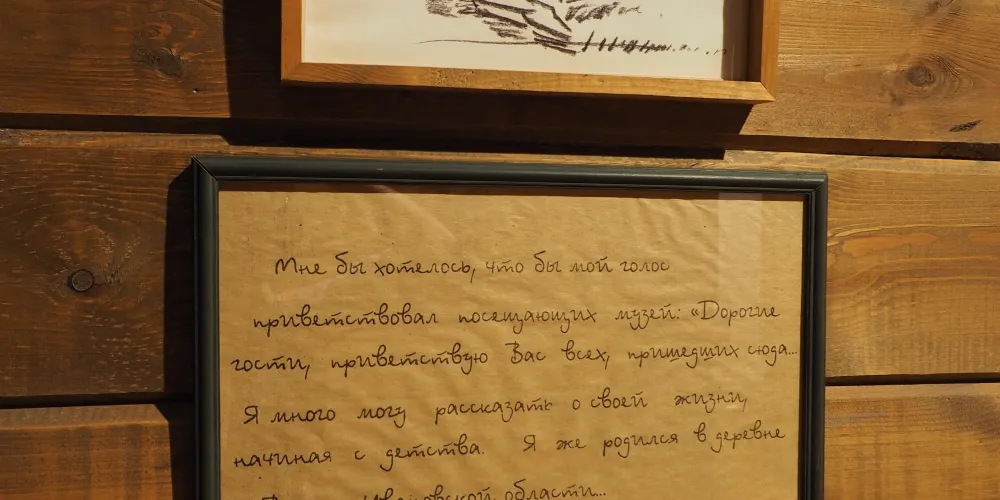 Мне бы хотелось, что бы мой голос
приветствовал посещающих музей: «Дорогие
гости, приветствую Вас всех, пришедших сюда...
Я много могу рассказать о своей жизни,
начиная с детства. Я же родился в деревне
области...